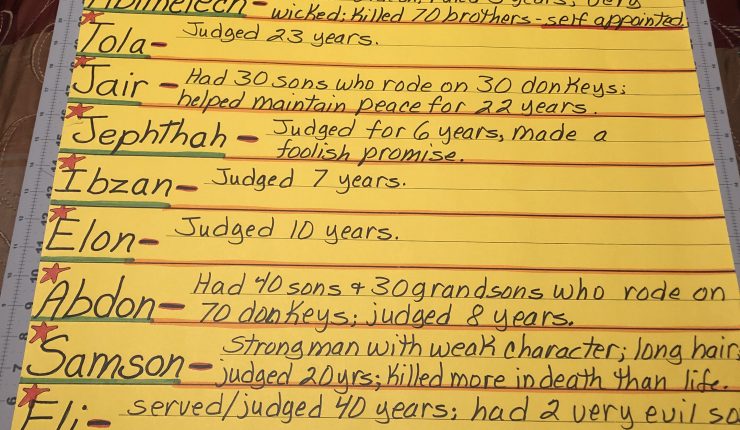 wicked; killed 70 brothers - self appointed;
Tola - Judged 23 years.
Jair - Had 30 sons who rode on 30 donkeys;
helped maintain peace for 22 years.
Jephthah - Judged for 6 years, made a
foolish promise.
Ibzan - Judged 7 years.
Elon - Judged 10 years.
Abdon - Had 40 sons + 30 grandsons who rode on
70 donkeys; judged 8 years.
Samson - Strong man with weak character; long hair;
judged 20 yrs; killed more in death than life.
Eli - served/judged 40 years; had 2 very evil so